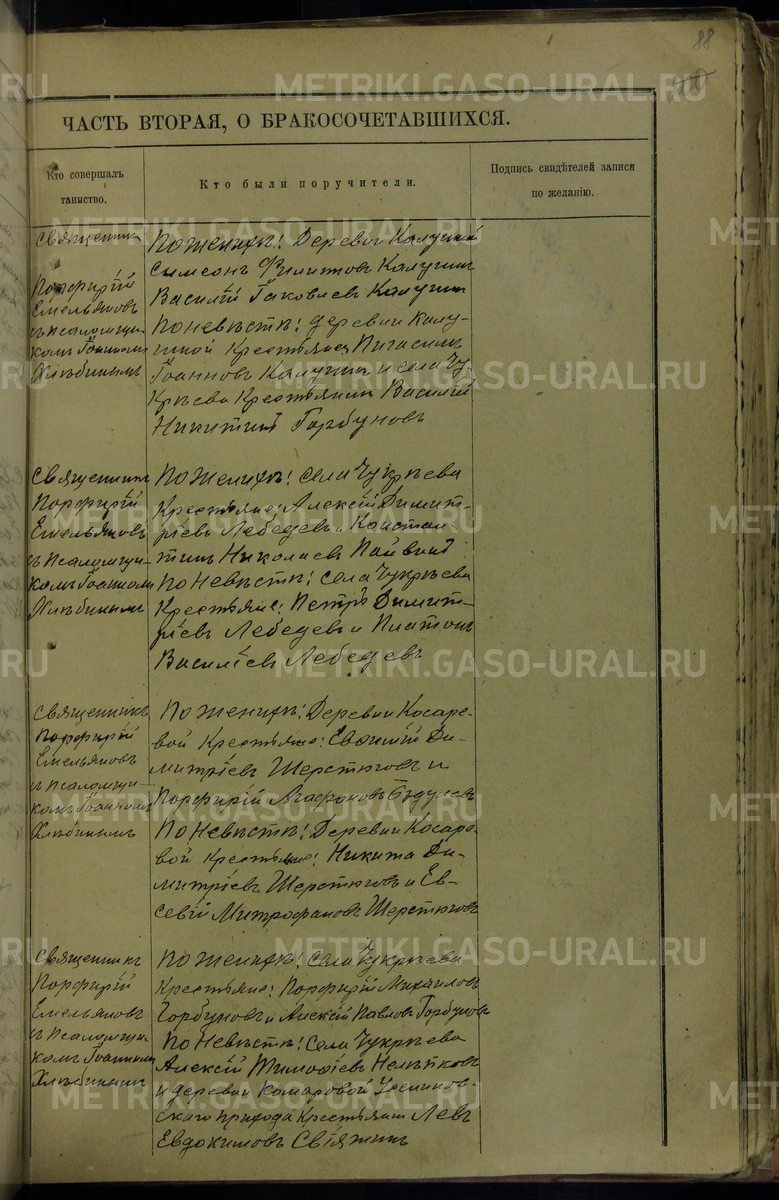 88
ЧАСТЬ ВТОРАЯ, О БРАКОСОЧЕТАВШИХСЯ.
Кто совершалъ
таинство.
Кто были поручители.
Подпись свидѣтелей записи
по желанію.
Священникъ
Порфирій
Емельяновъ
съ псаломщи-
комъ Іоанномъ
Хлѣбинымъ
По женихѣ: Деревни Калугиной
Симеонъ Филиповъ Калугинъ
Василій Іаковлевъ Калугинъ
По невѣстѣ: деревни Калу-
гиной Крестьяне
Іоанновъ Калугинъ и села Чу-
крѣева Крестьянинъ Василій
Никитинъ Горбуновъ
Священникъ
Порфирій
Емельяновъ
съ Псаломщи-
комъ Іоанномъ
Хлѣбинымъ
По Женихѣ: Села Чукрѣева
Крестьяне: Алексій Димит-
ріевъ Лебедевъ и Констан-
тинъ Николаевъ
По Невѣстѣ: Села Чукрѣева
Крестьяне: Петръ Димит-
ріевъ Лебедевъ и Платонъ
Василіевъ Лебедевъ
Священникъ
Порфирій
Емельяновъ
съ Псаломщи-
комъ Іоанномъ
Хлѣбинымъ
По женихѣ: Деревни Косаре-
вой Крестьяне: Евфимій Ди-
митріевъ Шерстюговъ и
Порфирій Агафоновъ
По Невѣстѣ: Деревни Косаре-
вой Крестьяне: Никита Ди-
митріевъ Шерстюговъ и Ев-
севій Митрофановъ Шерстюговъ
Священникъ
Порфирій
Емельяновъ
съ Псаломщи-
комъ Іоанномъ
Хлѣбинымъ
По женихѣ: Села Чукрѣева
Крестьяне: Порфирій Михаиловъ
Горбуновъ и Алексій Павловъ Горбуновъ
По Невѣстѣ: Села Чукрѣева
Алексій Тимоѳіевъ
и деревни Комаровой Усѣнинов-
скаго прихода Крестьянинъ Левъ
Евдокимовъ Свяжинъ
METRIKI.GASO-URAL.RU